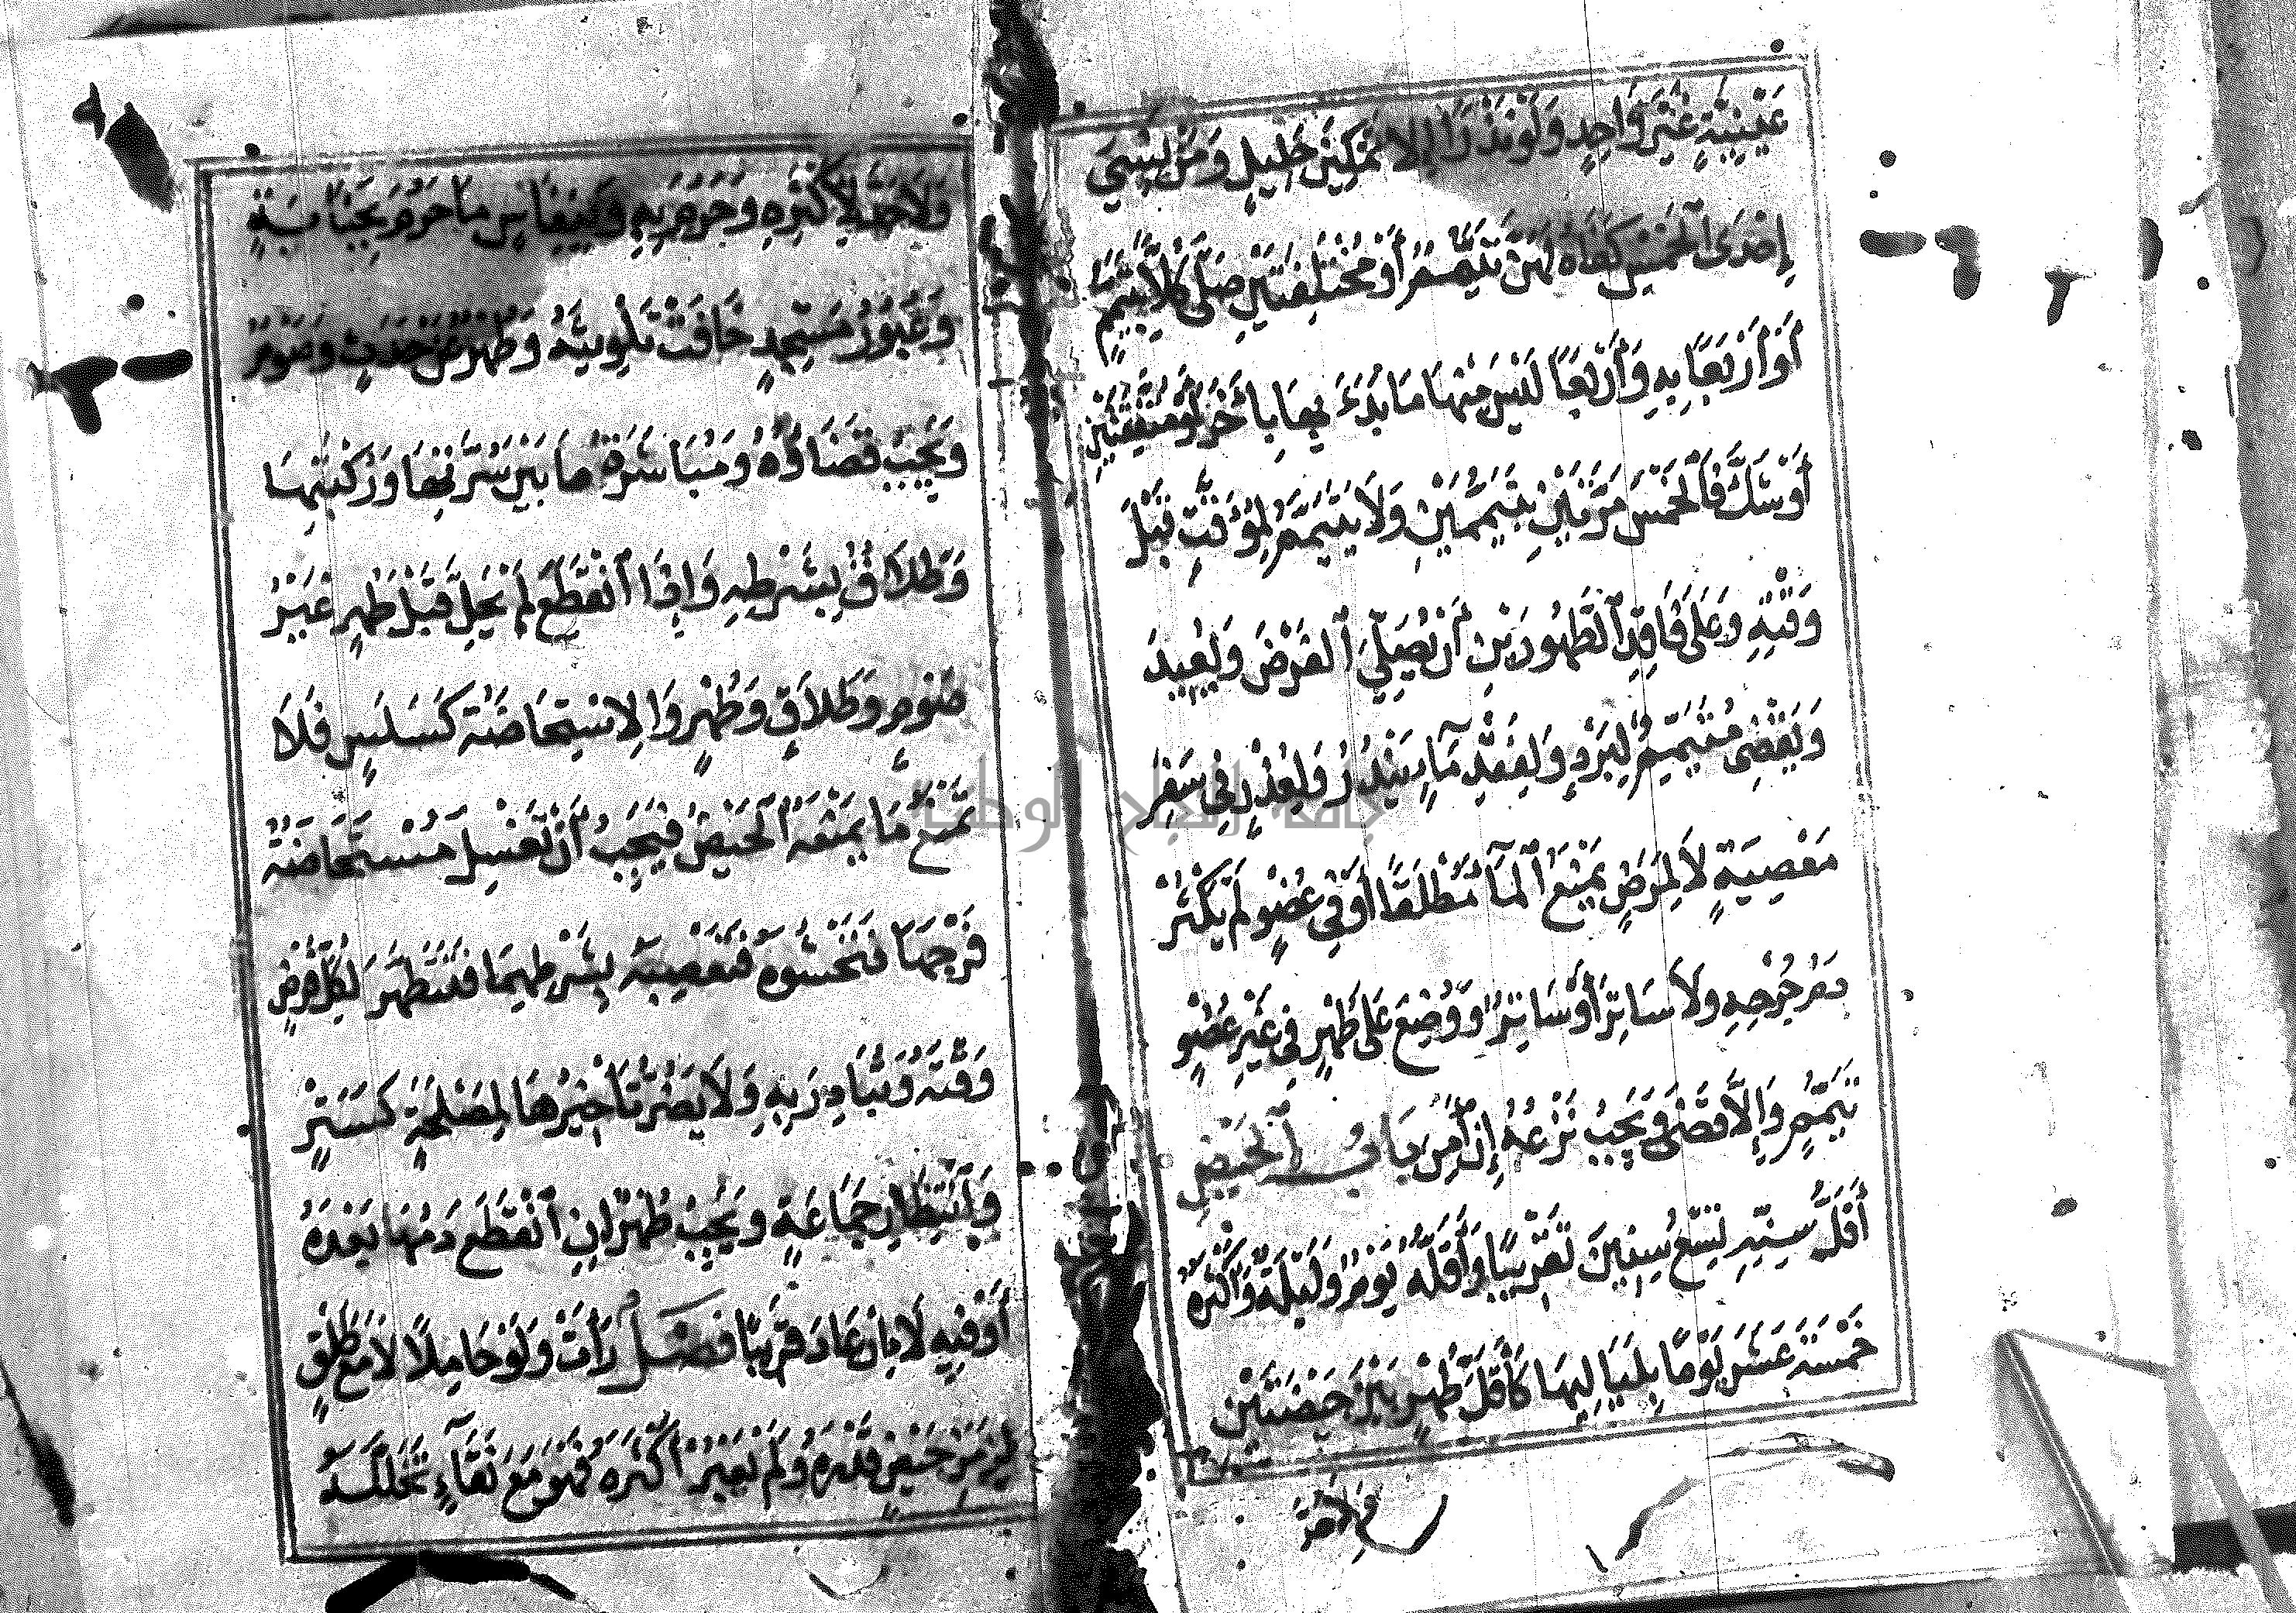 عَيْنِيَّةٍ غَيْرَ وَاحِدٍ وَلَوْ نَذْرًا إِلَّا تَمْكِينَ حَلِيلٍ وَمَنْ نَسِيَ
إِحْدَى ٱلْخَمْسِ كَفَاهُ لَهُنَّ تَيَمُّمٌ أَوْ مُخْتَلِفَتَيْنِ صَلَّى كُلًّا بِتَيَمُّمٍ
أَوْ أَرْبَعًا بِهِ وَأَرْبَعًا لَيْسَ مِنْهَا مَا بَدَءَ بِهَا بِآخَرَ أَوْ مُتَّفِقَتَيْنِ
أَوْ شَكَّ فَٱلْخَمْسَ مَرَّتَيْنِ بِتَيَمُّمَيْنِ وَلَا يَتَيَمَّمُ لِمُوَقَّتٍ قَبْلَ
وَقْتِهِ وَعَلَى فَاقِدِ ٱلطَّهُورَيْنِ أَنْ يُصَلِّيَ ٱلْفَرْضَ وَيُعِيدَ
وَيَقْضِي مُتَيَمِّمٌ لِبَرْدٍ وَلِفَقْدِ مَآءٍ يَنْدُرُ وَلِعُذْرٍ فِي سَفَرِ
مَعْصِيَةٍ لَا لِمَرَضٍ يَمْنَعُ ٱلْمَآءَ مُطْلَقًا أَوْ فِي عُضْوٍ لَمْ يَكْثُرْ
دَمُ جُرْحِهِ وَلَا سَاتِرَ أَوْ سَاتِرٌ وَوُضِعَ عَلَى طُهْرٍ فِي غَيْرِ عُضْوِ
تَيَمُّمٍ وَإِلَّا قَضَى وَيَجِبُ نَزْعُهُ إِنْ أَمِنَ بَابُ ٱلْحَيْضِ
أَقَلُّ سِنِّهِ تِسْعُ سِنِينَ تَقْرِيبًا وَأَقَلُّهُ يَوْمٌ وَلَيْلَةٌ وَأَكْثَرُهُ
خَمْسَةَ عَشَرَ يَوْمًا بِلَيَالِيهَا كَأَقَلِّ طُهْرٍ بَيْنَ حَيْضَتَيْنِ
وَلَا حَدَّ لِأَكْثَرِهِ وَحَرُمَ بِهِ وَبِنِفَاسٍ مَا حَرُمَ بِجَنَابَةٍ
وَعُبُورُ مَسْجِدٍ خَافَتْ تَلْوِيثَهُ وَطُهْرٌ عَنْ حَدَثٍ وَصَوْمٌ
وَيَجِبُ قَضَاؤُهُ وَمُبَاشَرَةُ مَا بَيْنَ سُرَّتِهَا وَرُكْبَتِهَا
وَطَلَاقٌ بِشَرْطِهِ وَإِذَا ٱنْقَطَعَ لَمْ يَحِلَّ قَبْلَ طُهْرٍ غَيْرُ
صَوْمٍ وَطَلَاقٍ وَطُهْرٍ وَالِاسْتِحَاضَةُ كَسَلَسٍ فَلَا
تَمْنَعُ مَا يَمْنَعُهُ ٱلْحَيْضُ فَيَجِبُ أَنْ تَغْسِلَ مُسْتَحَاضَةٌ
فَرْجَهَا فَتَحْشُوَهُ فَتَعْصِبَهُ بِشَرْطِهِمَا فَتَتَطَهَّرَ لِكُلِّ فَرْضٍ
وَقْتَهُ وَتُبَادِرَ بِهِ وَلَا يَضُرُّ تَأْخِيرُهَا لِمَصْلَحَةٍ كَسَتْرٍ
وَٱنْتِظَارِ جَمَاعَةٍ وَيَجِبُ طُهْرٌ إِنِ ٱنْقَطَعَ دَمُهَا بَعْدَهُ
أَوْ فِيهِ لَا إِنْ عَادَ قَرِيبًا فَصْلٌ رَأَتْ وَلَوْ حَامِلًا لَا مَعَ طَلْقٍ
لِزَمَنِ حَيْضٍ قَدْرَهُ وَلَمْ يَعْبُرْ أَكْثَرَهُ فَهُوَ مَعَ نَقَآءٍ تَخَلَّلَهُ
جامعة النجاح الوطنية